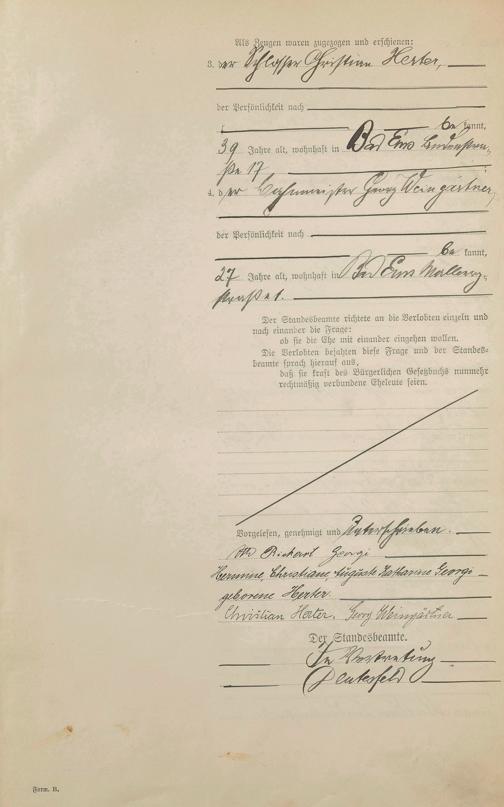 Als Zeugen waren zugezogen und erschienen:
3. der Schlosser Christian Herter,
der Persönlichkeit nach
be kannt,
39 Jahre alt, wohnhaft in Bad Ems
ße 17
4. der Georg Weingärtner,
der Persönlichkeit nach
be kannt,
27 Jahre alt, wohnhaft in Bad Ems
straße 1.
Der Standesbeamte richtete an die Verlobten einzeln und
nach einander die Frage:
ob sie die Ehe mit einander eingehen wollen.
Die Verlobten bejahten diese Frage und der Standes-
beamte sprach hierauf aus,
daß sie kraft des Bürgerlichen Gesetzbuchs nunmehr
rechtmäßig verbundene Eheleute seien.
Vorgelesen, genehmigt und Unterschrieben.
Richard Georgi
Hermine, Christiane, Auguste Katharine Georgi
geborene Herter.
Christian Herter. Georg Weingärtner
Der Standesbeamte.
In Vertretung
Form. B.